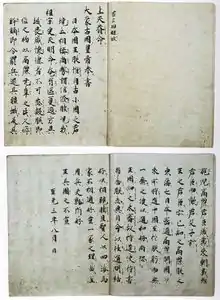 上天眷命
大蒙古國皇帝奉書
日本國王朕惟自古小國之君
境土相接尚務講信修睦況我
祖宗受天明命奄有區夏遐方異
域畏威懷德者不可悉數朕即
位之初以高麗无辜之民久瘁
鋒鏑即令罷兵還其疆域反其
旄倪高麗君臣感戴來朝義雖
君臣而歡若父子計
王之君臣亦已知之高麗朕之
東藩也日本密邇高麗開國以
來亦時通中國至於朕躬而無
一乘之使以通和好尚恐
王國知之未審故特遣使持書
布告朕志冀自今以往通問結
好以相親睦且聖人以四海為
家不相通好豈一家之理哉至
用兵夫孰所好
王其圖之不宣
至元三年八月日